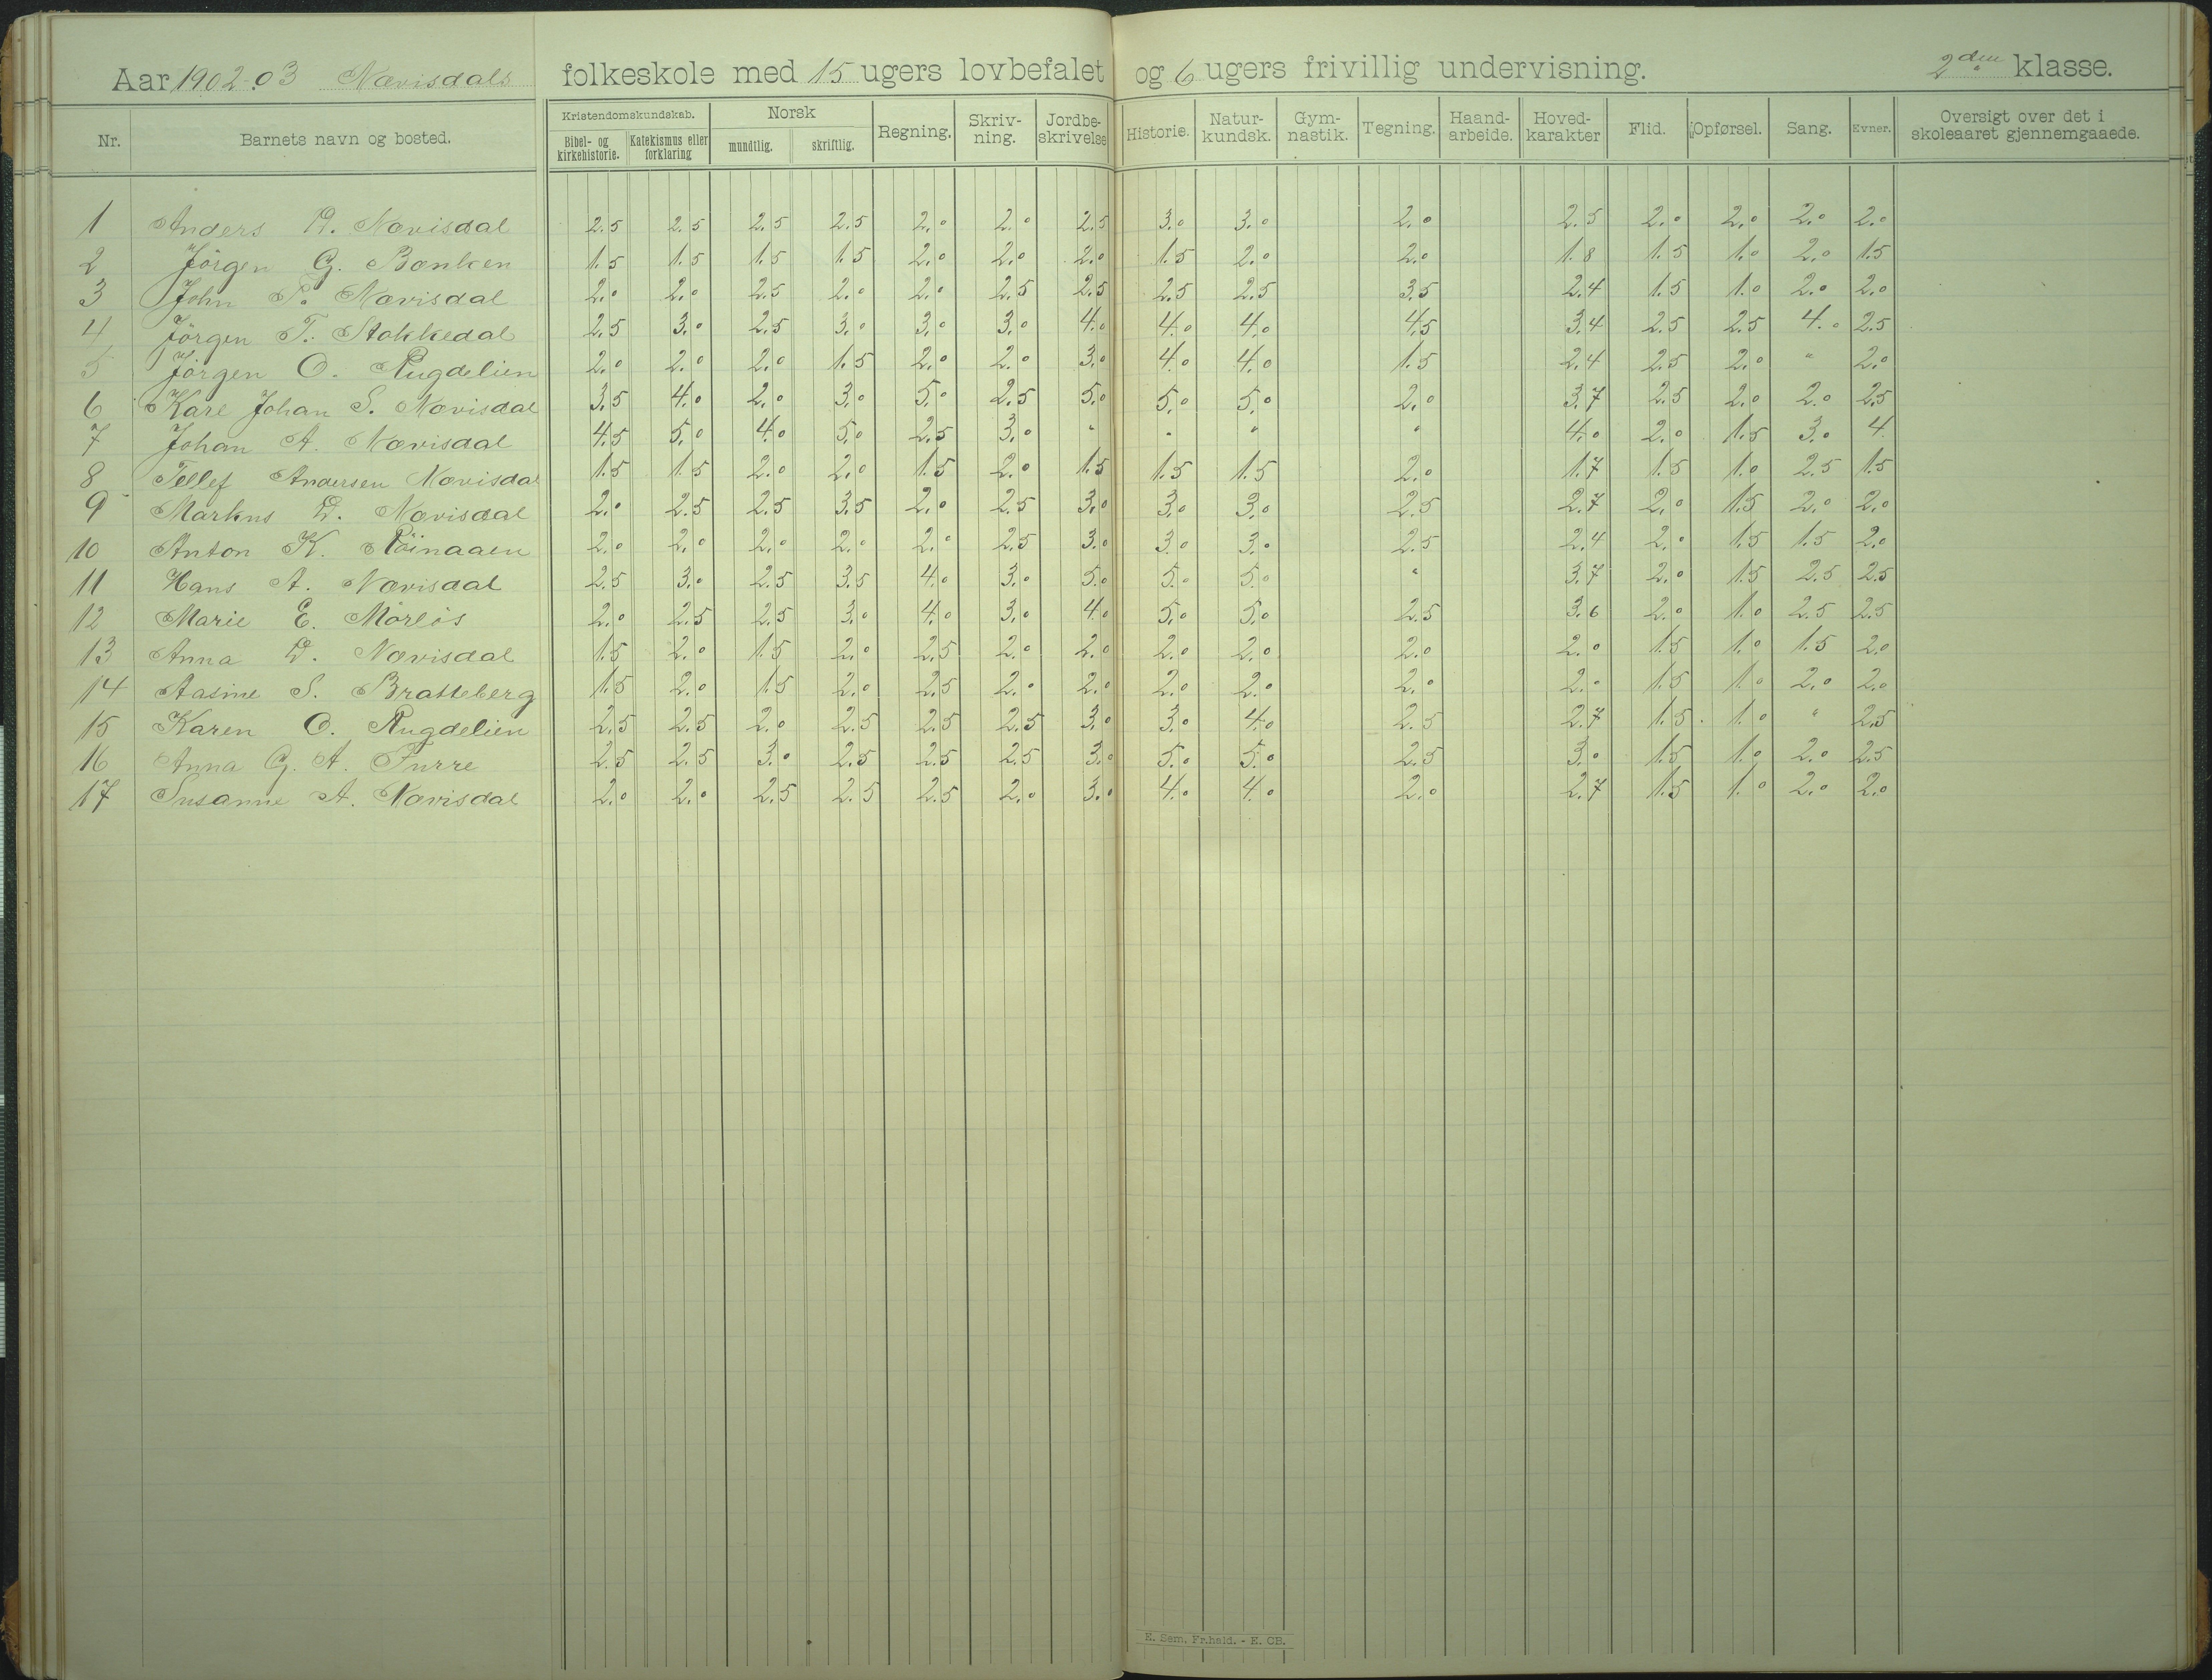 Aar 1902-03 Nævisdals folkeskole med 15 ugers lovbefalet og 6 ugers frivillig undervisning. 2den klasse.
Nr. Barnets navn og bosted. Kristendomskundskab. Bibel- og kirkehistorie. Katekismus eller forklaring Norsk mundtlig. skriftlig. Regning. Skriv-ning. Jordbe-skrivelse Historie. Natur-kundsk. Gym-nastik. Tegning. Haand-arbeide. Hoved-karakter Flid. Opførsel. Sang. Evner. Oversigt over det i skoleaaret gjennemgaaede.
1 Anders A. Nævisdal 2.5 2.5 2.5 2.5 2.0 2.0 2.5 3.0 3.0 2.0 2.5 2.0 2.0 2.0 2.0
2 Jörgen G. Bænken 1.5 1.5 1.5 1.5 2.0 2.0 2.0 1.5 2.0 2.0 1.8 1.5 1.0 2.0 1.5
3 John P. Nævisdal 2.0 2.0 2.5 2.0 2.0 2.5 2.5 2.5 2.5 3.5 2.4 1.5 1.0 2.0 2.0
4 Jörgen T. Stokkedal 2.5 3.0 2.5 3.0 3.0 3.0 4.0 4.0 4.0 4.5 3.4 2.5 2.5 4.0 2.5
5 Jörgen O. Rugdelien 2.0 2.0 2.0 1.5 2.0 2.0 3.0 4.0 4.0 1.5 2.4 2.5 2.0 " 2.0
6 Karl Johan S. Nævisdal 3.5 4.0 2.0 3.0 5.0 2.5 5.0 5.0 5.0 2.0 3.7 2.5 2.0 2.0 2.5
7 Johan A. Nævisdal 4.5 5.0 4.0 5.0 2.5 3.0 " " " " 4.0 2.0 1.5 3.0 4.
8 Tellef Andersen Nævisdal 1.5 1.5 2.0 2.0 1.5 2.0 1.5 1.5 1.5 2.0 1.7 1.5 1.0 2.5 1.5
9 Markus D. Nævisdal 2.0 2.5 2.5 3.5 2.0 2.5 3.0 3.0 3.0 2.5 2.7 2.0 1.5 2.0 2.0
10 Anton K. Röinaaen 2.0 2.0 2.0 2.0 2.0 2.5 3.0 3.0 3.0 2.5 2.4 2.0 1.5 1.5 2.0
11 Hans A. Nævisdal 2.5 3.0 2.5 3.5 4.0 3.0 5.0 5.0 5.0 " 3.7 2.0 1.5 2.5 2.5
12 Marie E. Mörlös 2.0 2.5 2.5 3.0 4.0 3.0 4.0 5.0 5.0 2.5 3.6 2.0 1.0 2.5 2.5
13 Anna D. Nævisdal 1.5 2.0 1.5 2.0 2.5 2.0 2.0 2.0 2.0 2.0 2.0 1.5 1.0 1.5 2.0
14 Aasine S. Bratteberg 1.5 2.0 1.5 2.0 2.5 2.0 2.0 2.0 2.0 2.0 2.0 1.5 1.0 2.0 2.0
15 Karen O. Rugdelien 2.5 2.5 2.0 2.5 2.5 2.5 3.0 3.0 4.0 2.5 2.7 1.5 1.0 " 2.5
16 Anna G. A. Furre 2.5 2.5 3.0 2.5 2.5 2.5 3.0 5.0 5.0 2.5 3.0 1.5 1.0 2.0 2.5
17 Susanne A. Nævisdal 2.0 2.0 2.5 2.5 2.5 2.0 3.0 4.0 4.0 2.0 2.7 1.5 1.0 2.0 2.0
E. Sem. Fr.hald. - E. CB.